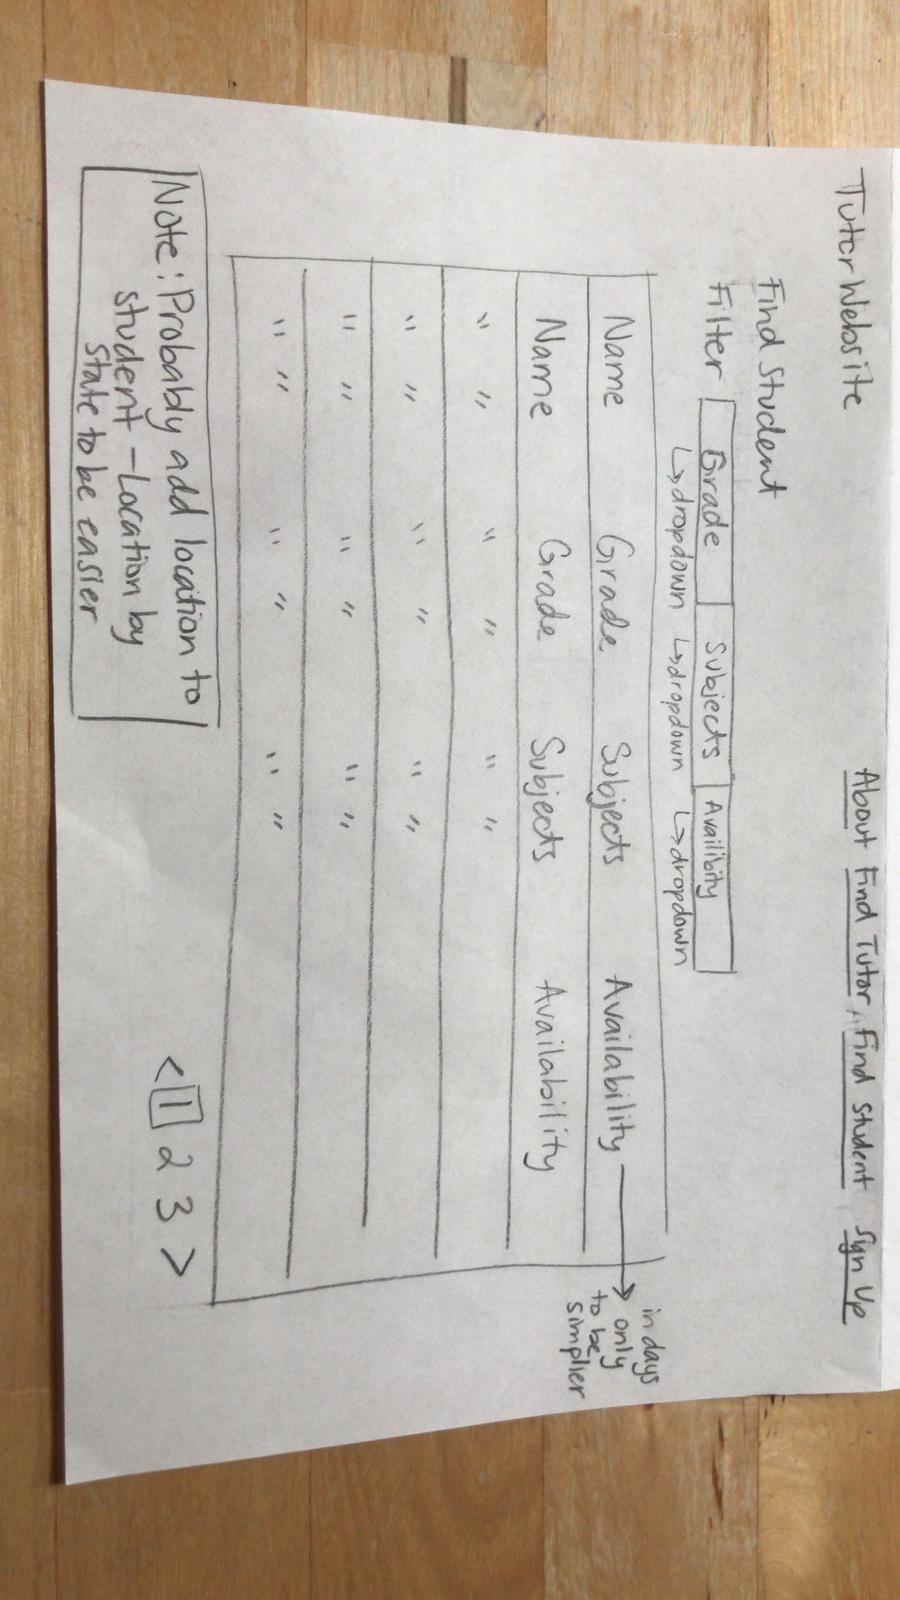 Tutor Website
About Find Tutor Find Student Sign Up
Find Student
Filter Grade Subjects Availibity
↳dropdown ↳dropdown ↳dropdown
Name Grade Subjects Availability → in days only to be simplier
Name Grade Subjects Availability
" " " " " "
" " " " " "
" " " " " "
" " " " " "
< 1 2 3 >
Note: Probably add location to
student - Location by
State to be easier